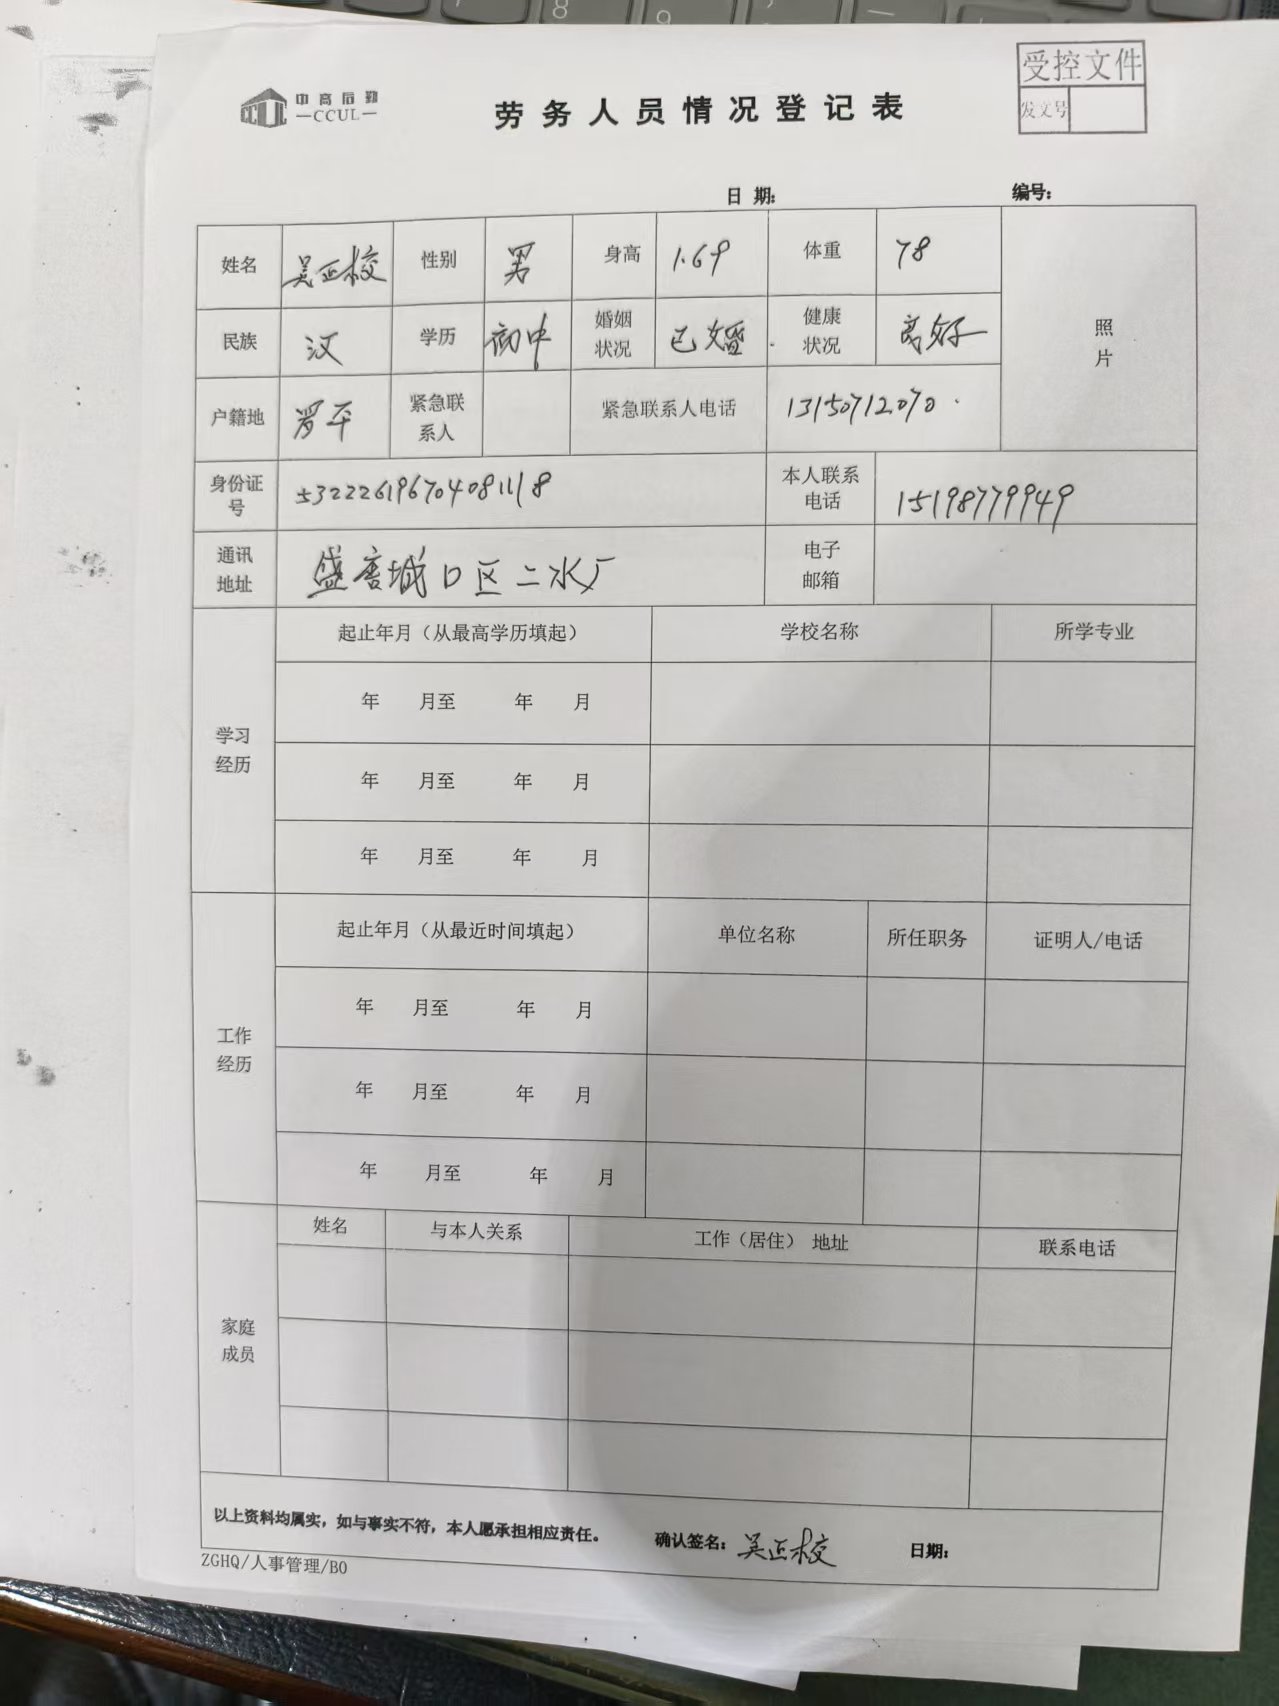 8 9 一
中高后勤
CCUL
劳务人员情况登记表
受控文件
发文号
日期:
编号:
姓名 吴正校 性别 男 身高 1.69 体重 78 照片
民族 汉 学历 初中 婚姻状况 已婚 健康状况 良好
户籍地 罗平 紧急联系人 紧急联系人电话 13150712070
身份证号 532226196704081118 本人联系电话 15198779949
通讯地址 盛唐城口区二水厂 电子邮箱
学习经历 起止年月（从最高学历填起） 学校名称 所学专业
年 月至 年 月
年 月至 年 月
年 月至 年 月
工作经历 起止年月（从最近时间填起） 单位名称 所任职务 证明人/电话
年 月至 年 月
年 月至 年 月
年 月至 年 月
家庭成员 姓名 与本人关系 工作（居住） 地址 联系电话
以上资料均属实，如与事实不符，本人愿承担相应责任。 确认签名: 吴正校 日期:
ZGHQ/人事管理/B0